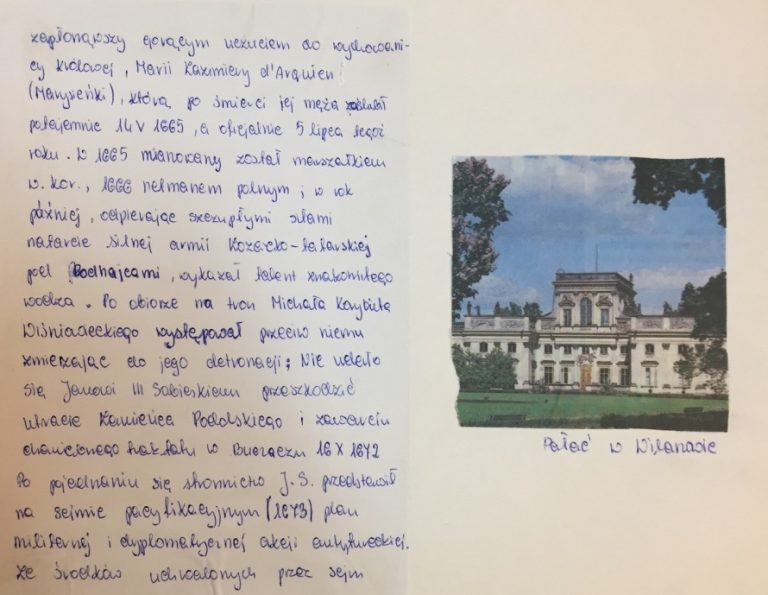 zapłonąwszy gorącym uczuciem do wychowani-
cy królowej, Marii Kazimiery d'Arquien
(Marysieńki), którą po śmierci jej męża zaślubił
potajemnie 14 V 1665, a oficjalnie 5 lipca tegoż
roku. W 1665 mianowany został marszałkiem
w. kor., 1666 hetmanem polnym; w rok
później, odpierając szczupłymi siłami
natarcie silnej armii Kozacko-tatarskiej
pod Podhajcami, wykazał talent znakomitego
wodza. Po obiorze na tron Michała Korybuta
Wiśniowieckiego występował przeciw niemu
zmierzając do jego detronacji; Nie udało
się Janowi III Sobieskiemu przeszkodzić
utracie Kamieńca Podolskiego i zawarciu
traktatu w Buczaczu 16 X 1672
Po pojednaniu się stronnictw J. S. przedstawił
na sejmie pacyfikacyjnym (1673) plan
militarnej i dyplomatycznej akcji antytureckiej.
Ze środków uchwalonych przez sejm
Pałac w Wilanowie